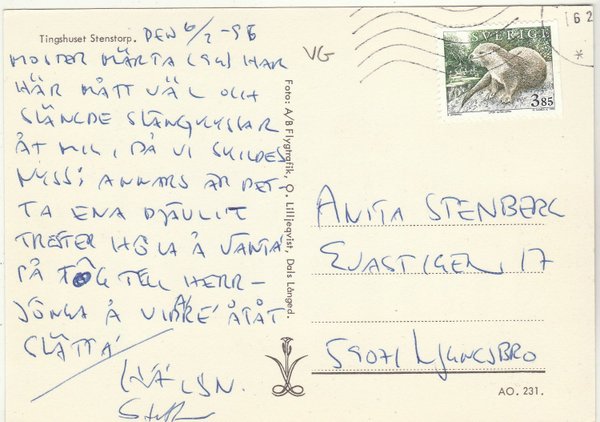 Tingshuset Stenstorp. DEN 6/7 -96
MOSTER MÄRTA (94) HAR
HÄR MÅTT VÄL OCH
SLÄNGDE SLÄNGKYSSAR
ÅT MIG, DÅ VI SKILDES
NYSS; ANNARS ÄR DET-
TA ENA DJÄULIT
TRESTER HÖLA Å VÄNTA
PÅ TÖG TELL HERR-
JÖNGA Å VIDRE ÅTÅT
SLÄTTA
HÄLSN.
VG
Foto: A/B Flygtrafik, O. Lilljeqvist, Dals Långed.
SVERIGE
3,85
62
ANITA STENBERG
EVASTIGEN 17
59071 LJUNGSBRO
AO. 231.